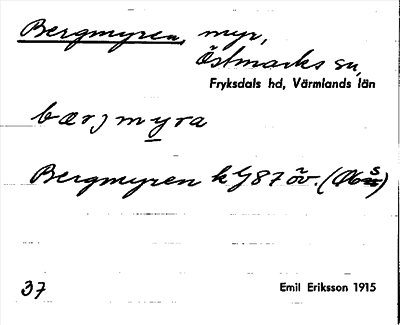 Bergmyren, myr,
Östmarks sn,
Fryksdals hd, Värmlands län
bærjmyra
Bergmyren k G87 öv.
37
Emil Eriksson 1915